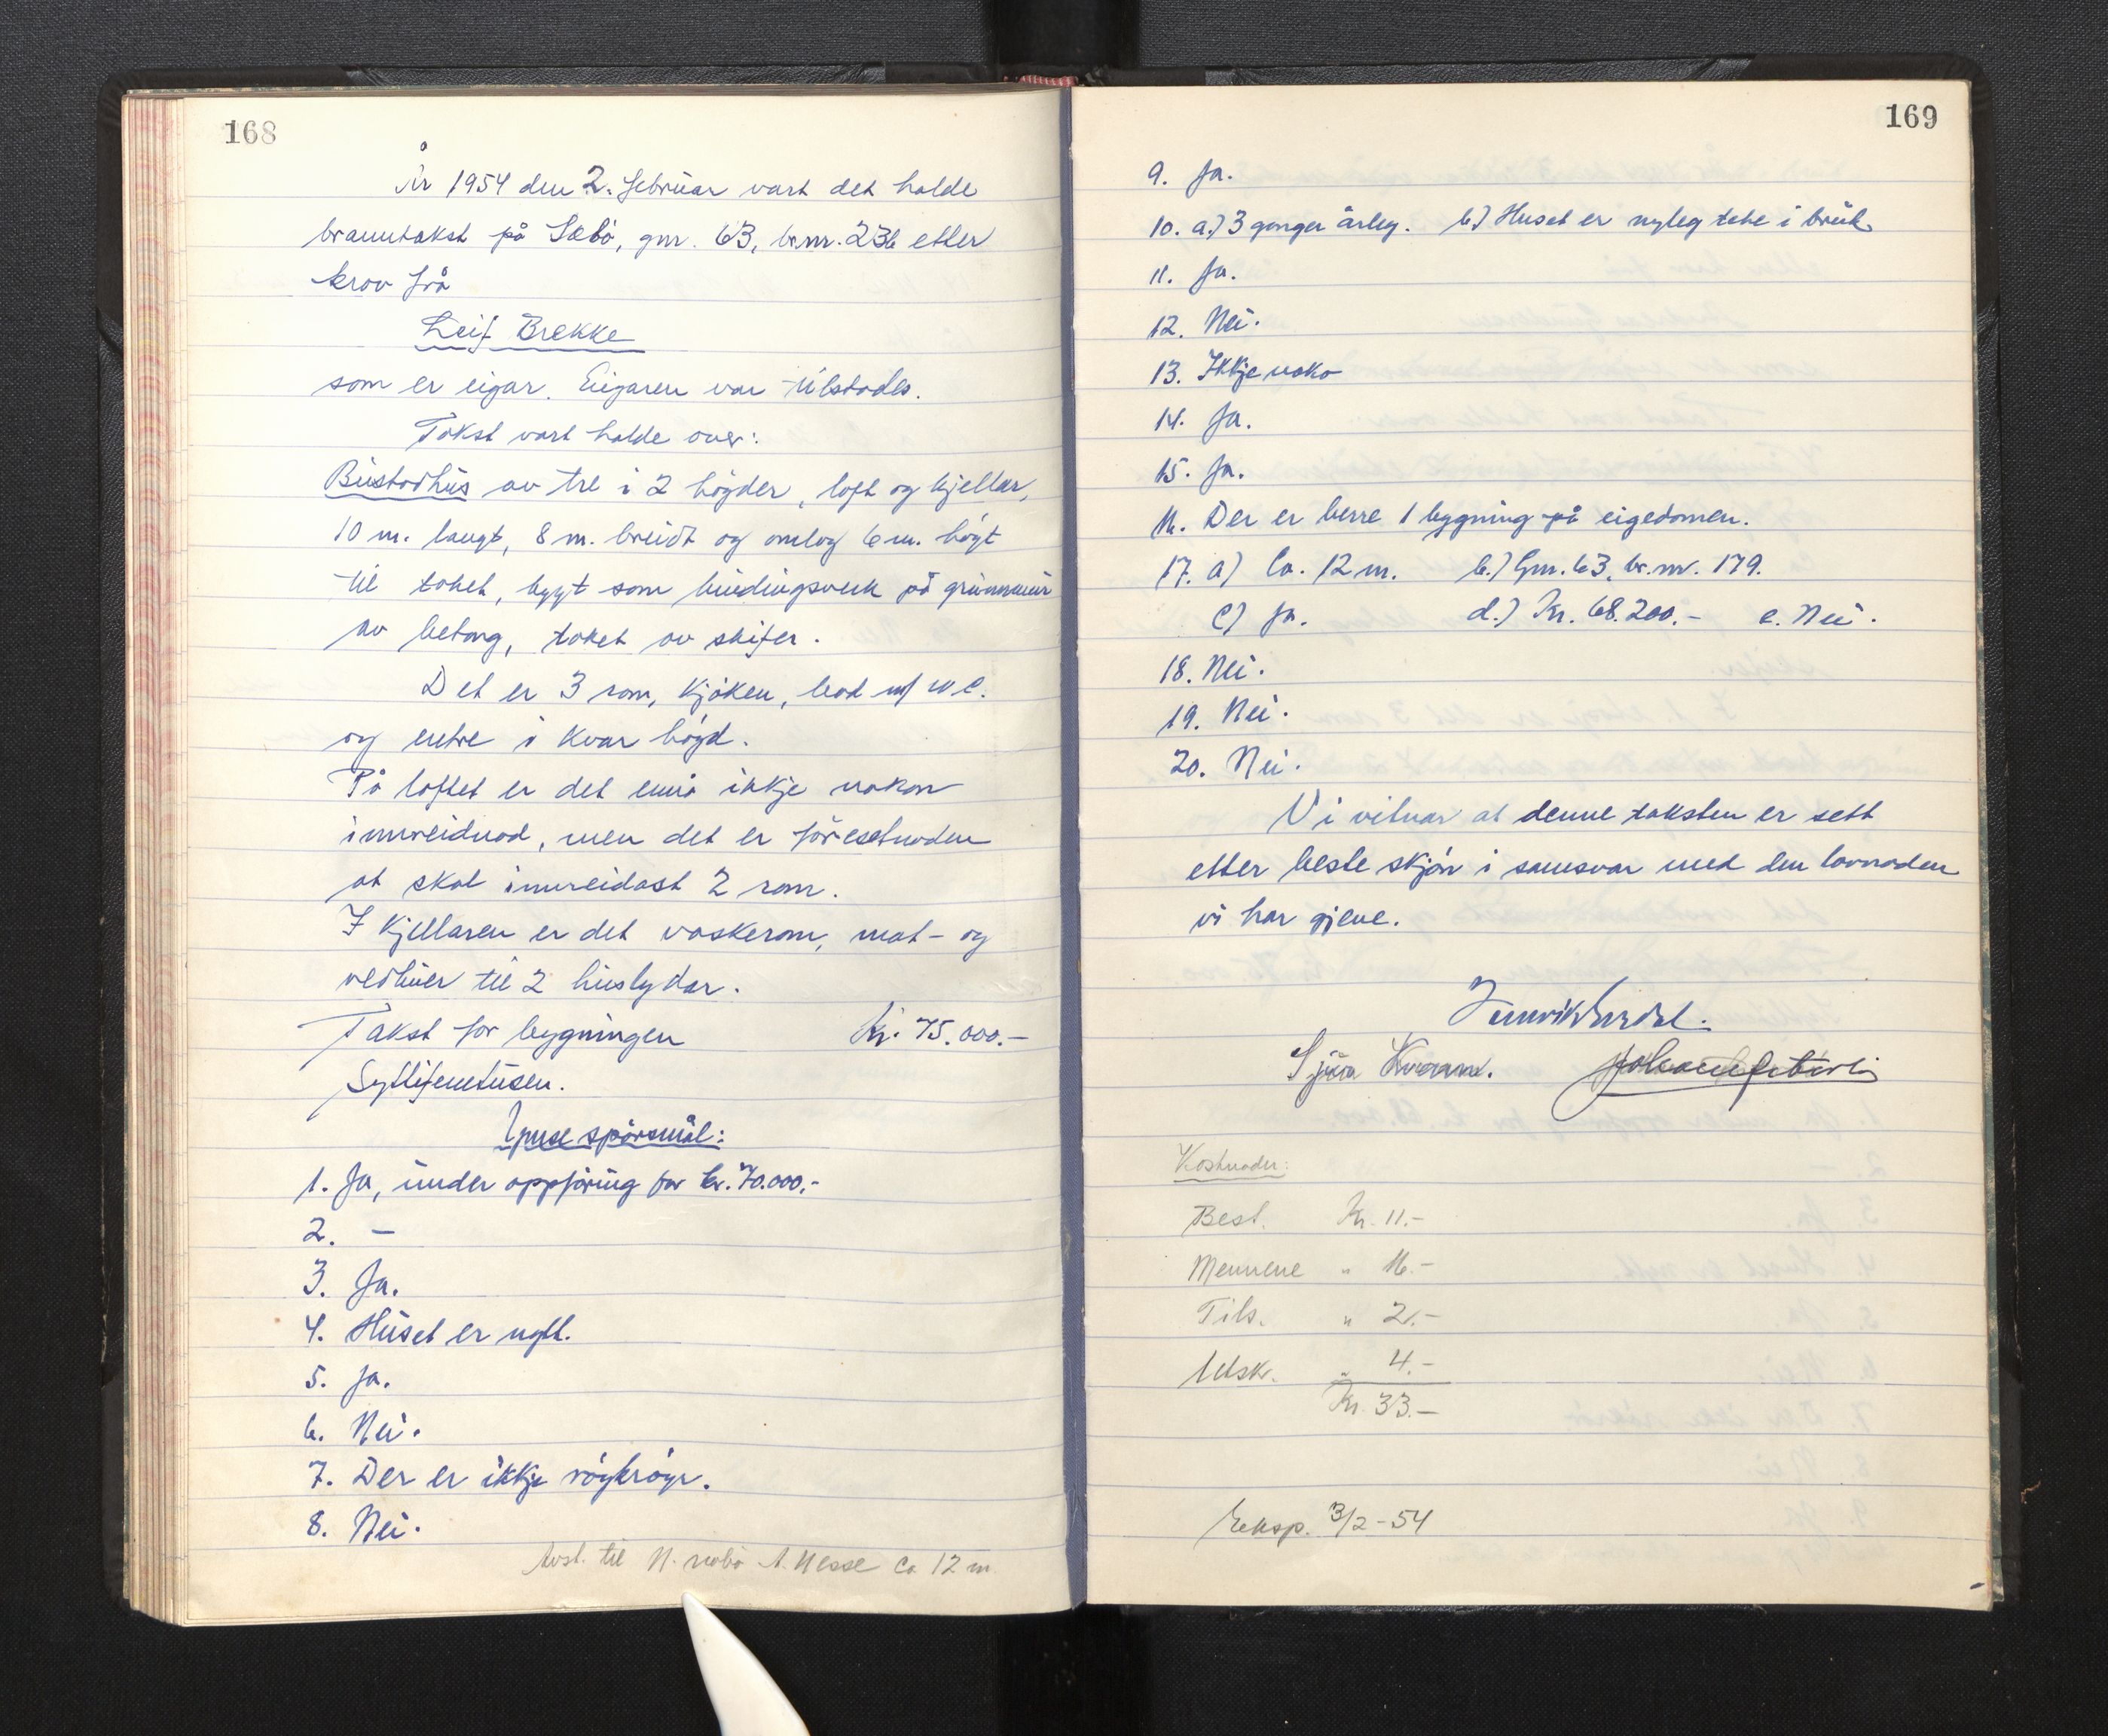 168
År 1954 den 2. februar vart det halde
branntakst på Sæbö, gnr. 63, br.nr. 236 etter
krav frå
Leif Brekke
som er eigar. Eigaren var tilstades.
Takst vart halde over:
Bustadhus av tre i 2 högder, loft og kjellar,
10 m. langt, 8 m. breidt og omlag 6 m. högt
til taket, bygt som bindingsverk på grunnmur
av betong, taket av skifer.
Det er 3 rom, kjöken, bad m/ w c.
og entre i kvar högd.
På loftet er det ennå ikkje nokon
innreidnad, men det er föresetnaden
at skal innreidast 2 rom.
I kjellaren er det vaskerom, mat- og
vedbuer til 2 huslydar.
Takst for bygningen kr. 75.000.-
Syttifemtusen.
Ymse spörsmål:
1. Ja, under oppföring for kr. 70.000,-
2. -
3. Ja.
4. Huset er nytt.
5. Ja.
6. Nei.
7. Der er ikkje röykröyr.
8. Nei.
Avst. til N. nabo A. Nesse ca 12 m
169
9. Ja.
10. a.) 3 gonger årleg. b.) Huset er nyleg teke i bruk
11. Ja.
12. Nei.
13. Ikkje noko
14. Ja.
15. Ja.
16. Der er berre 1 bygning på eigedomen.
17. a) Ca. 12 m. b.) Gnr. 63, br.nr. 179.
c) Ja. d.) Kr. 68.200.- e. Nei.
18. Nei.
19. Nei.
20. Nei.
Vi vitnar at denne taksten er sett
etter beste skjön i samsvar med den lovnaden
vi har gjeve.
Sjur Kvamme.
Kostnader:
Best. Kr. 11.-
Mennene " 16.-
Tils. " 2.-
Utskr. " 4.-
Kr. 33.-
Eksp. 3/2-54